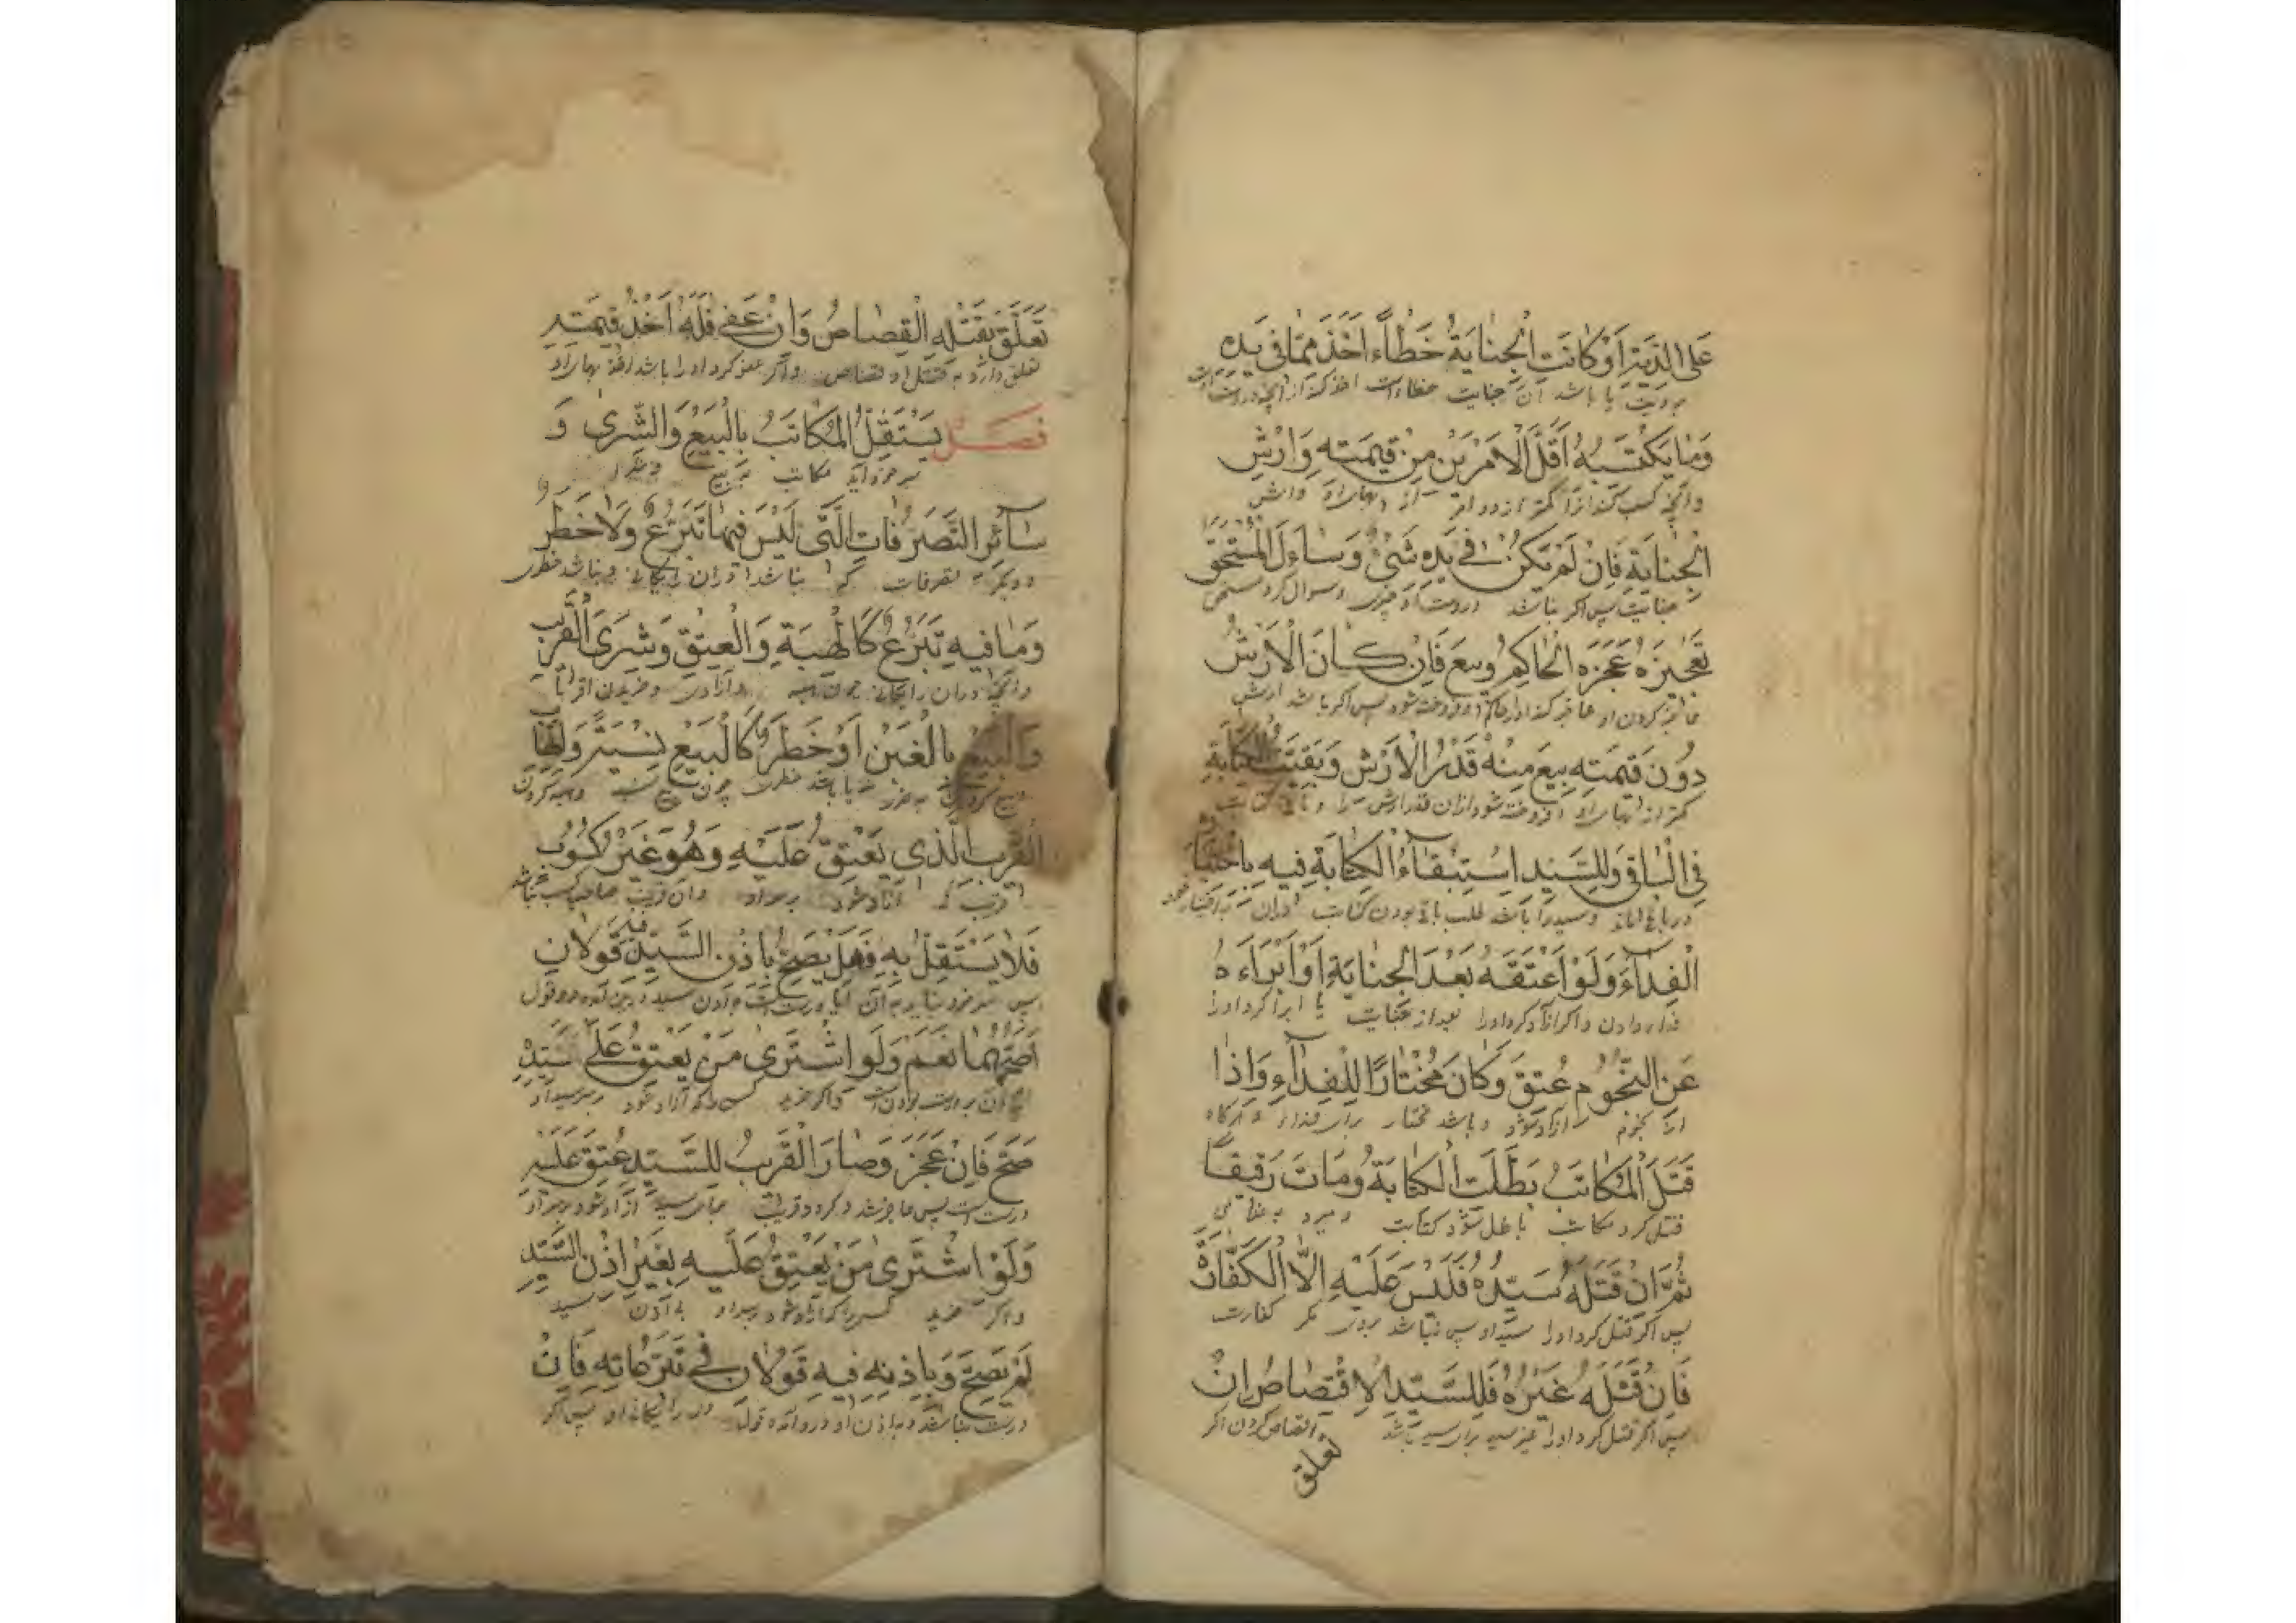 عَلَى الدِّيَةِ اَوْ كَانَتِ الْجِنَايَةُ خَطَاءً اَخَذَ مِمَّا فِي يَدِهِ
بر دیت یا باشد آن جنایت خطاء است اخذ کند از آنچه در دست اوست
وَمَا يَكْتَسِبُهُ اَقَلَّ الْاَمْرَيْنِ مِنْ قِيمَتِهِ وَاَرْشِ
وآنچه کسب کند آنرا کمتر از دو امر از بهاء او وارش
الْجِنَايَةِ فَاِنْ لَمْ يَكُنْ فِي يَدِهِ شَيْءٌ وَسَاَءلَ الْمُسْتَحِقُّ
جنایت پس اگر نباشد در دست او چیزی وسوال کرد مستحق
تَعْجِيزَهُ عَجَّزَهُ الْحَاكِمُ وَبِيعَ فَاِنْ كَانَ الْاَرْشُ
عاجز کردن او عاجز کند او را حاکم و فروخته شود پس اگر باشد ارش
دُونَ قِيمَتِهِ بِيعَ مِنْهُ قَدْرُ الْاَرْشِ وَبَقِيَتِ الْكِتَابَةُ
کمتر از بهاء او فروخته شود از آن قدر ارش را و باقی کتابت
فِي الْبَاقِي وَلِلسَّيِّدِ اسْتِبْقَاءُ الْكِتَابَةِ فِيهِ بِاخْتِيَارِ
در باقی وسید را باشد طلب باقی بودن کتابت در آن به اختیار
الْفِدَآءِ وَلَوْ اَعْتَقَهُ بَعْدَ الْجِنَايَةِ اَوْ اَبْرَاَءهُ
فدا دادن واگر آزاد کرد او را بعد از جنایت یا ابرا کرد او را
عَنِ النُّجُومِ عُتِقَ وَكَانَ مُخْتَارًا لِلْفِدَآءِ وَاِذَا
از نجوم آزاد شود وباشد مختار برای فداء هرگاه
قَتَلَ الْمُكَاتَبُ بَطَلَتِ الْكِتَابَةُ وَمَاتَ رَقِيقًا
قتل کرد مکاتب باطل شود کتابت ومیرد
ثُمَّ اِنْ قَتَلَهُ سَيِّدُهُ فَلَيْسَ عَلَيْهِ اِلَّا الْكَفَّارَةُ
پس اگر قتل کرد او را سید او پس نباشد بروی مگر کفارت
فَاِنْ قَتَلَهُ غَيْرُهُ فَلِلسَّيِّدِ الْاِقْتِصَاصُ اِنْ
پس اگر قتل کرد او را غیر سید برای سید باشد اقتصاص کردن اگر
تعلق
تَعَلَّقَ بِقَتْلِهِ الْقِصَاصُ وَاِنْ عَفِي فَلَهُ اَخْذُ قِيمَتِهِ
تعلق دارد به قتل او قصاص واگر عفو کرد او را باشد اخذ بهاء او
فصل يَسْتَقِلُّ الْمُكَاتَبُ بِالْبَيْعِ وَالشِّرَى وَ
مکاتب به بیع
سَآئِرِ التَّصَرُّفَاتِ الَّتِي لَيْسَ فِيهَا تَبَرُّعٌ وَلَا خَطَرٌ
ودیگر تصرفات که نباشد در آن رایگانی ونباشد خطری
وَمَا فِيهِ تَبَرُّعٌ كَالْهِبَةِ وَالْعِتْقِ وَشِرَى الْقَرِيبِ
وآنچه در آن رایگانی چون هبه وآزادی وخریدن اقربا
وَالْبَيْعِ بِالْغَبْنِ اَوْ خَطَرٌ كَالْبَيْعِ نَسِيئَةً
وبیع کردن یا باشد خطری چون بیع نسیه وهبه کردن
الْقَرِيبِ الَّذِي يَعْتِقُ عَلَيْهِ وَهُوَ غَيْرُ كَسُوبٍ
قریب که آزاد شود بر او وآن قریب صاحب کسب نباشد
فَلَا يَسْتَقِلُّ بِهِ فَهَلْ يَصِحُّ بِاِذْنِ السَّيِّدِ فِيهِ قَوْلَانِ
پس به آن آیا درست است به اذن سید درین دو قول
اَصَحُّهُمَا نَعَمْ وَلَوِ اشْتَرَى مَنْ يَعْتِقُ عَلَى سَيِّدِهِ
واگر خرید کسی را که آزاد شود بر سید او
صَحَّ فَاِنْ عَجَزَ وَصَارَ الْقَرِيبُ لِلسَّيِّدِ عُتِقَ عَلَيْهِ
درست است پس عاجز شد وگردد قریب سید آزاد شود بر او
وَلَوِ اشْتَرَى مَنْ يَعْتِقُ عَلَيْهِ بِغَيْرِ اِذْنِ السَّيِّدِ
واگر خرید کسی را که آزاد شود بر او بی اذن سید
لَمْ يَصِحَّ وَبِاِذْنِهِ فِيهِ قَوْلَانِ فِي تَبَرُّعَاتِهِ فَاِنْ
درست نباشد وبه اذن او در او دو قول در رایگانی او پس اگر